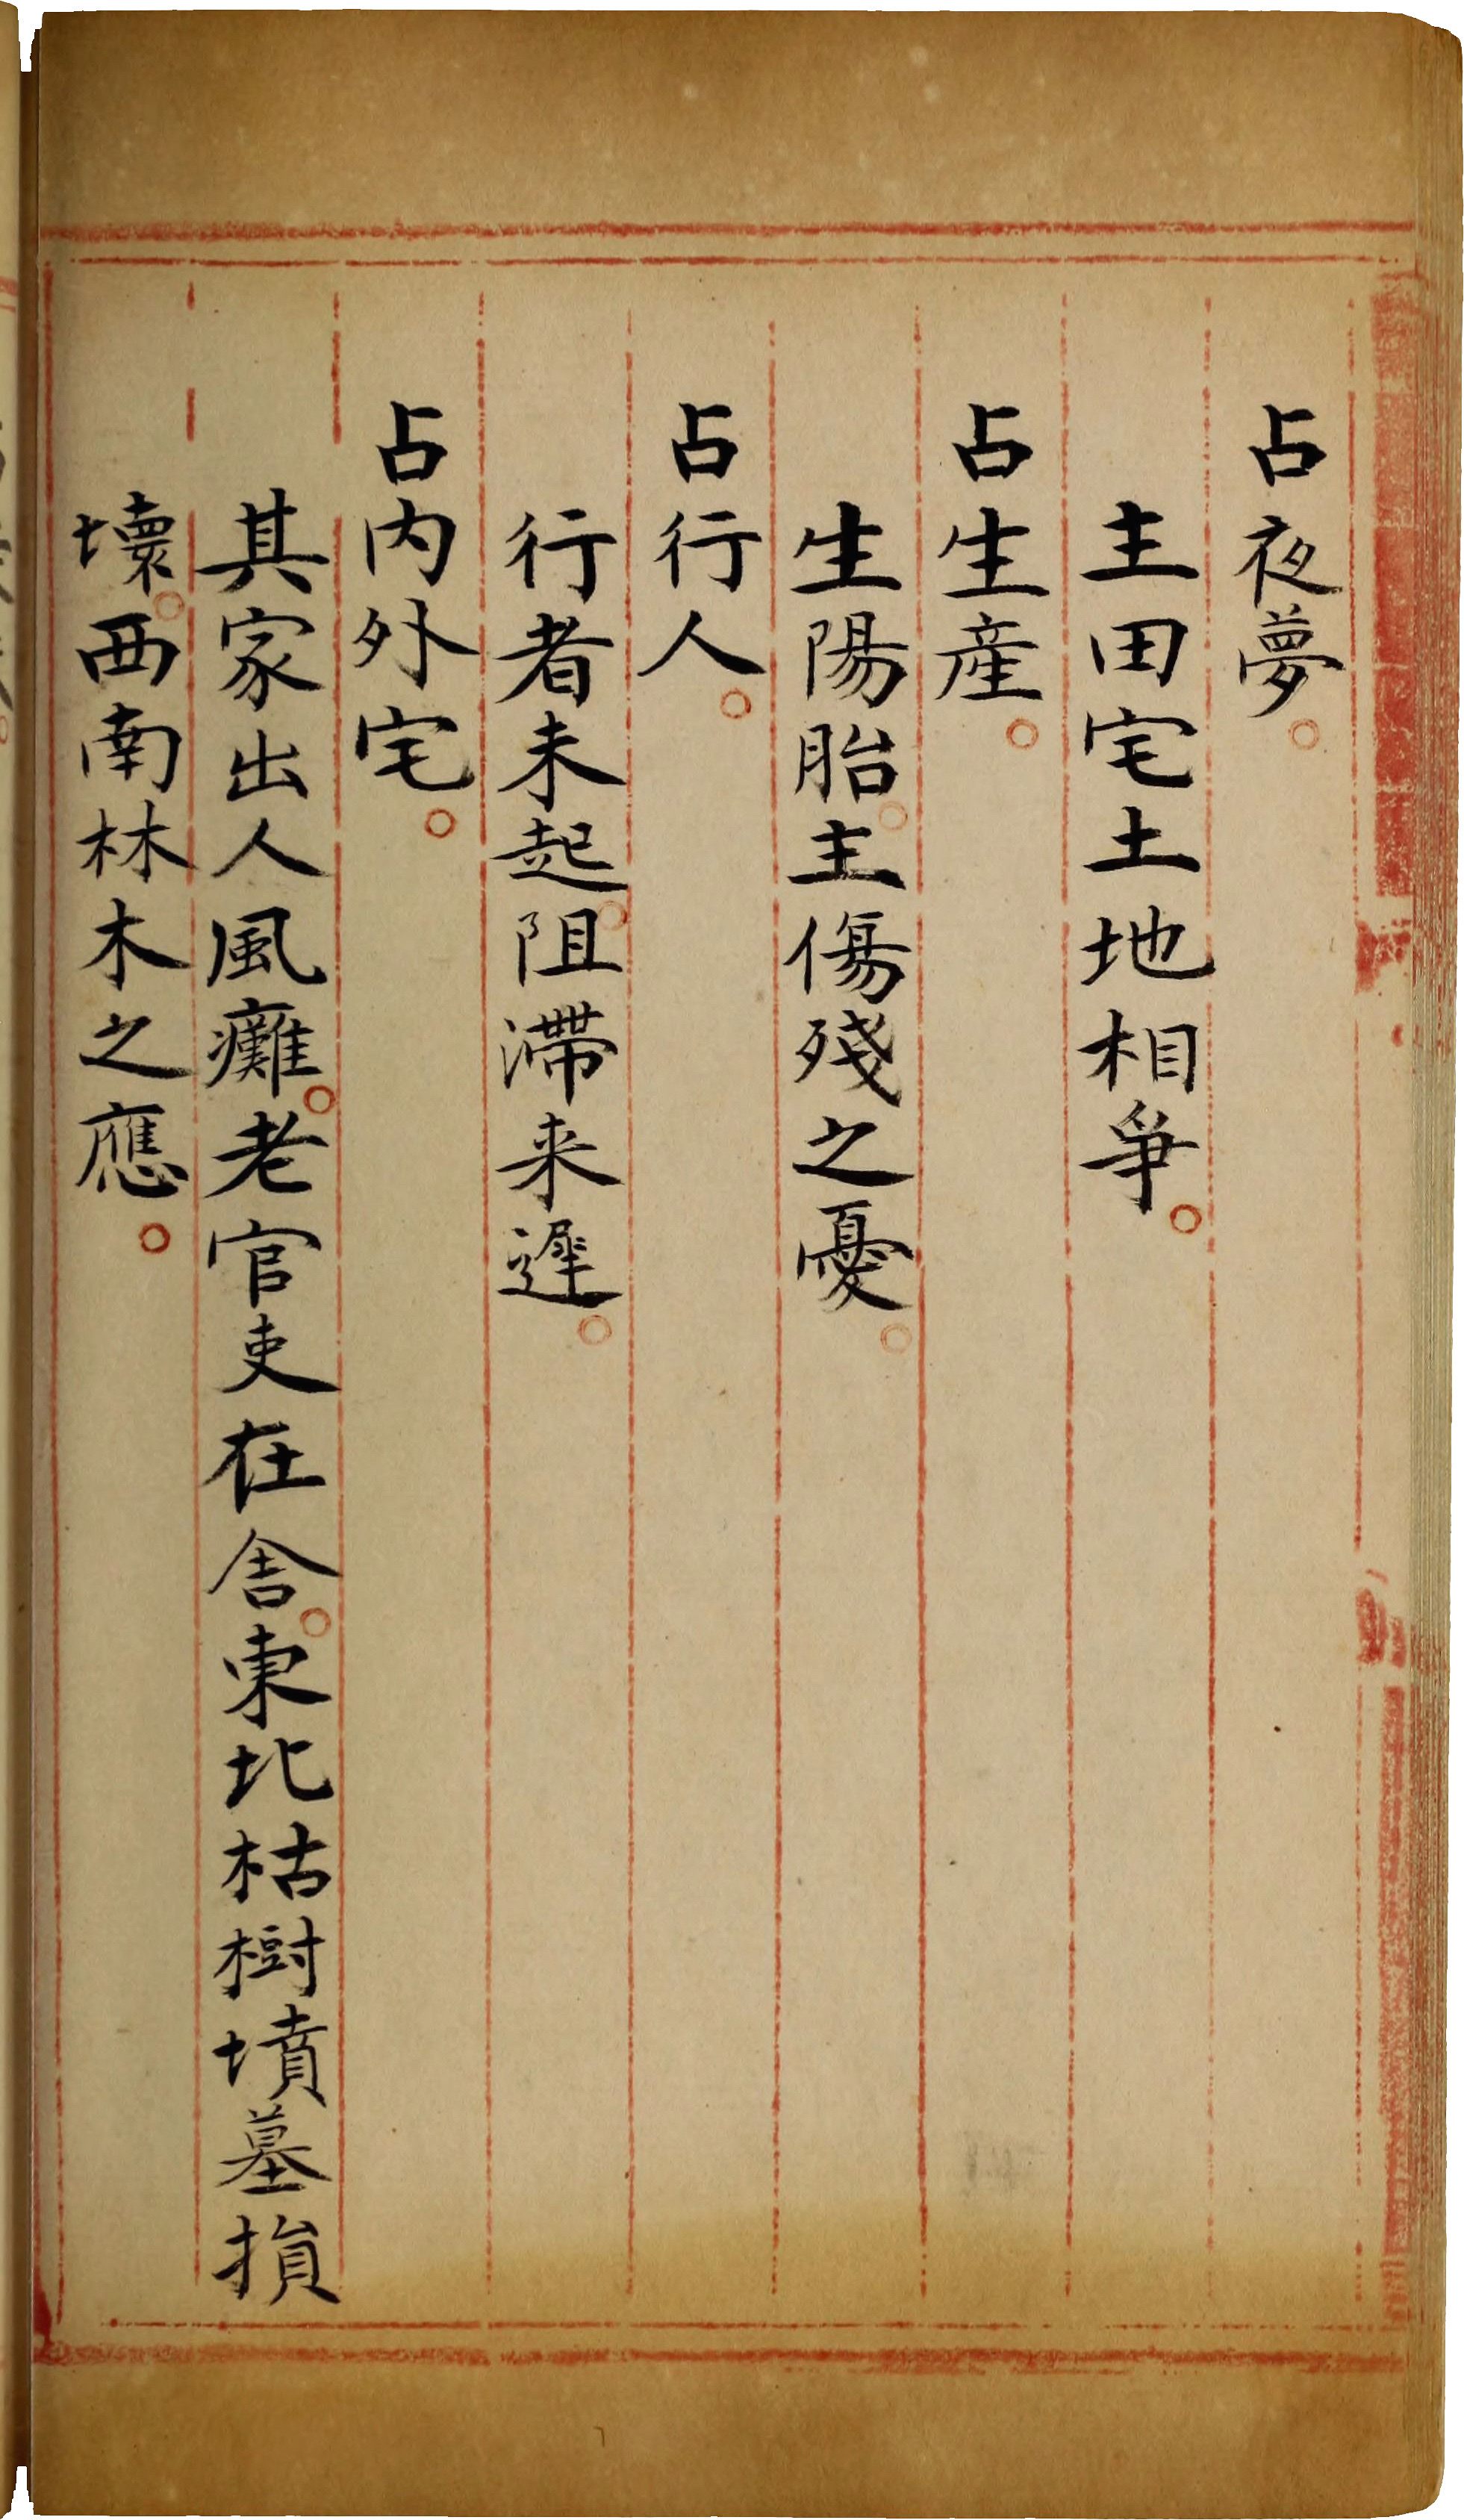 占夜夢。
主田宅土地相爭。
占生産。
生陽胎。主傷殘之憂。
占行人。
行者未起。阻滯来遲。
占内外宅。
其家出人風癱。老官吏在舍。東北枯樹墳墓損
壞。西南林木之應。